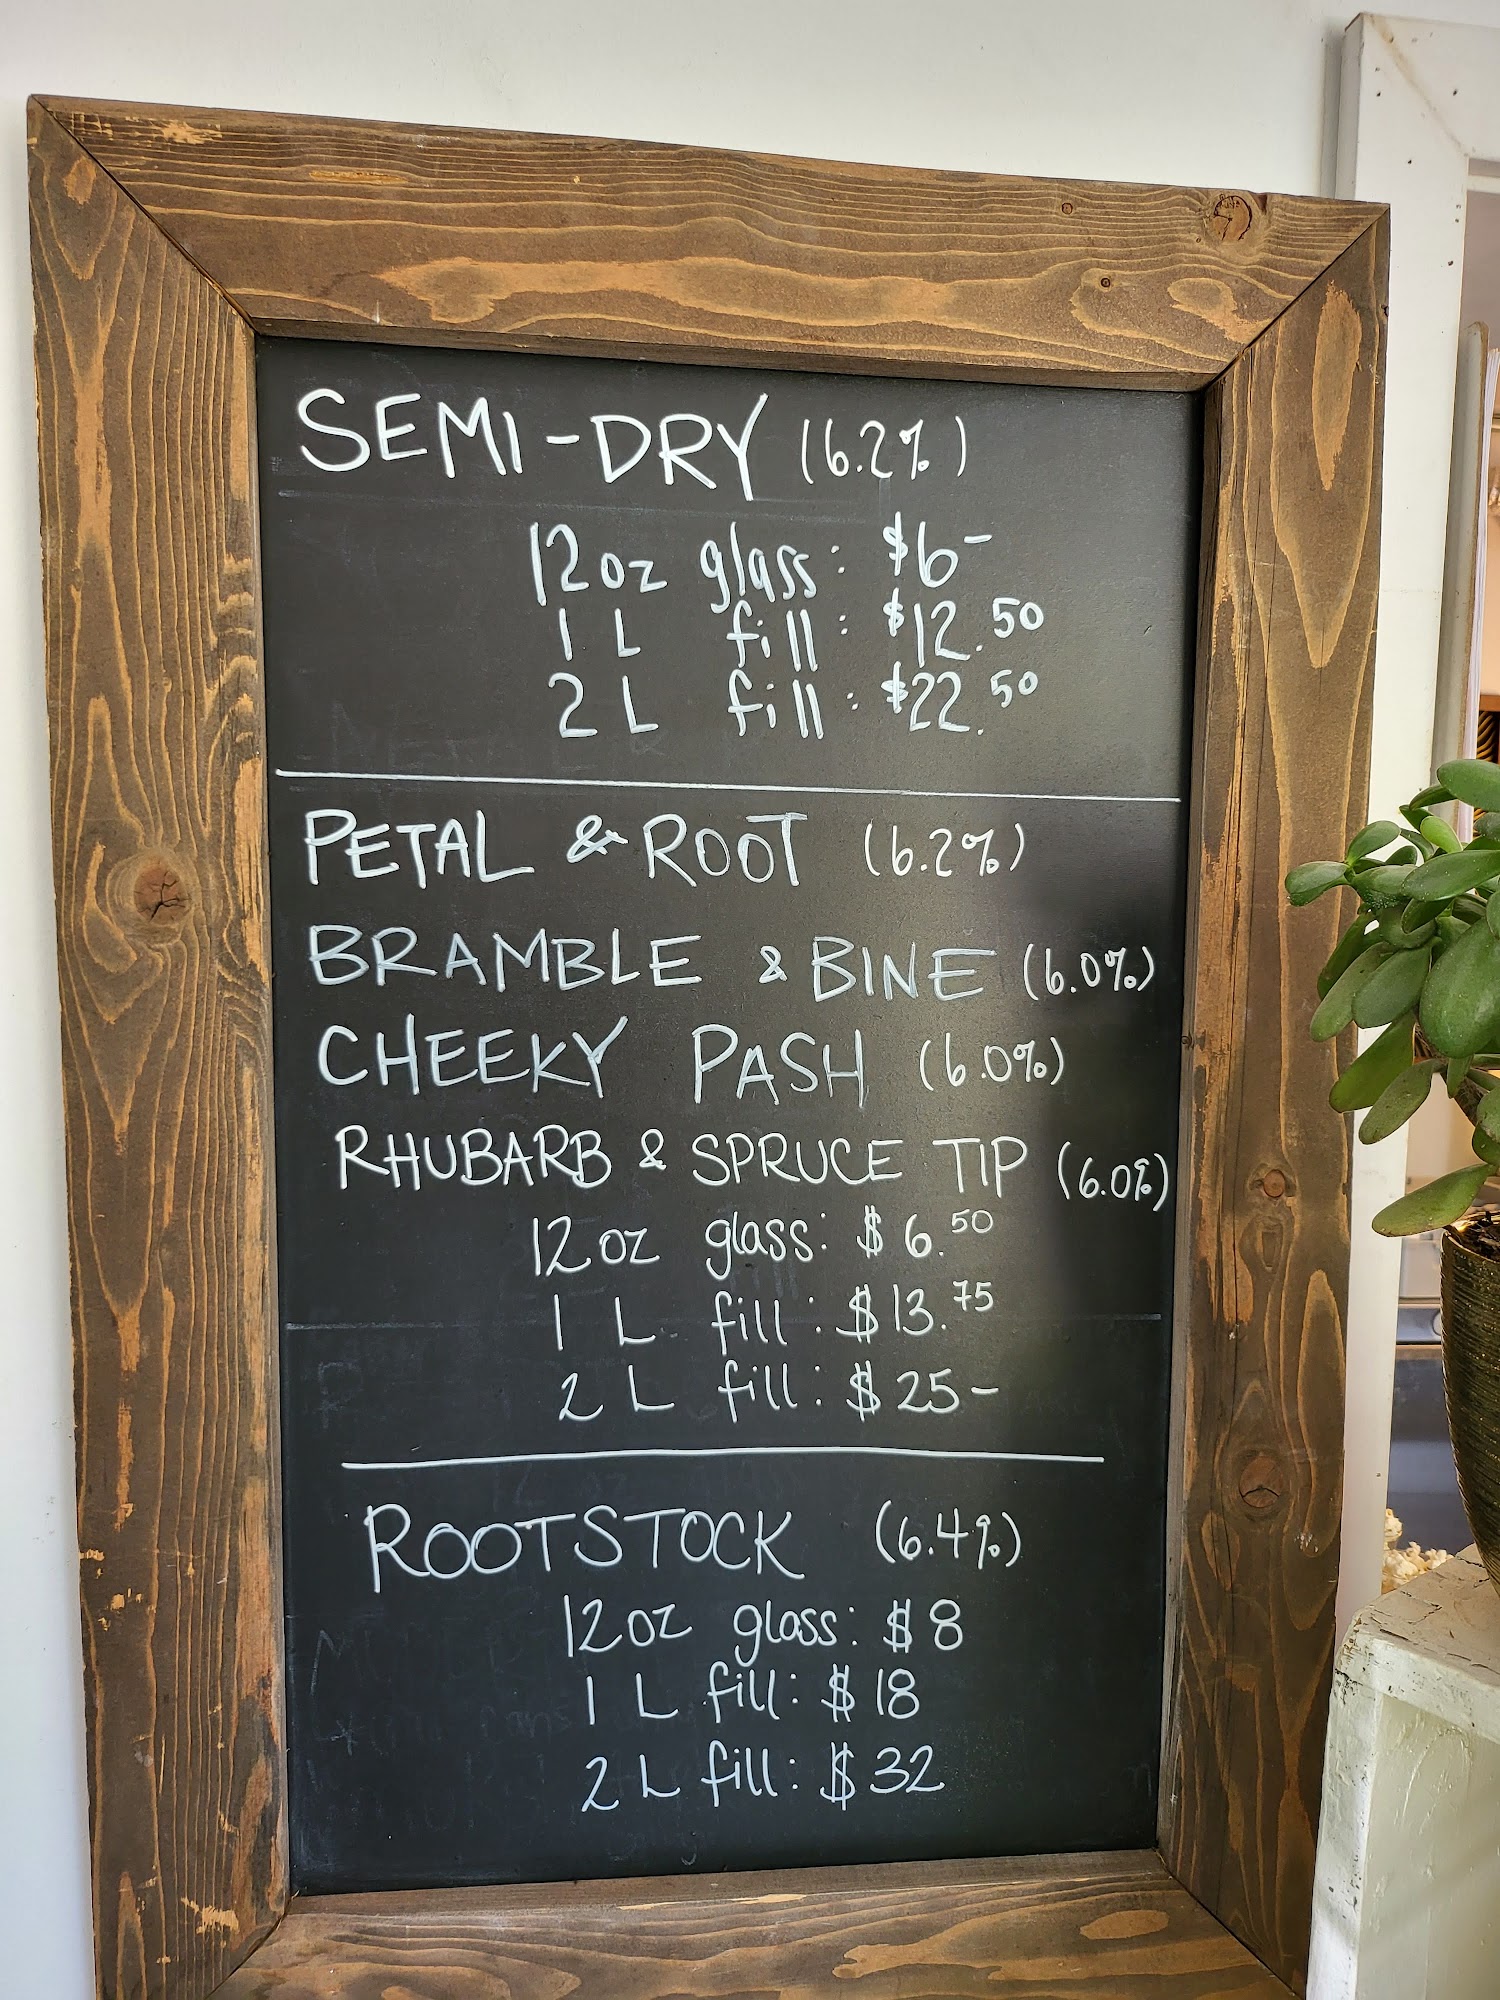 SEMI-DRY (6.2%)
12oz glass: $6-
1 L fill: $12.50
2 L fill: $22.50
PETAL & ROOT (6.2%)
BRAMBLE & BINE (6.0%)
CHEEKY PASH (6.0%)
RHUBARB & SPRUCE TIP (6.0%)
12oz glass: $6.50
1 L fill: $13.75
2 L fill: $25-
ROOTSTOCK (6.4%)
12oz glass: $8
1 L fill: $18
2 L fill: $32